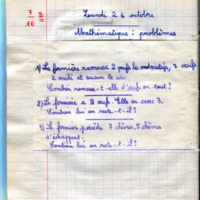 7
10
B
Lundi 26 octobre
Mathématique : problèmes
1) La fermière ramasse 2 œufs le matin, 7 œufs
à midi et aucun le soir.
Combien ramasse-t-elle d'œufs en tout ?
2) La fermière a 8 œufs. Elle en casse 3.
Combien lui en reste-t-il ?
3) Le fermier possède 7 chèvres, 5 chèvres
s'échappent.
Combien lui en reste-t-il ?